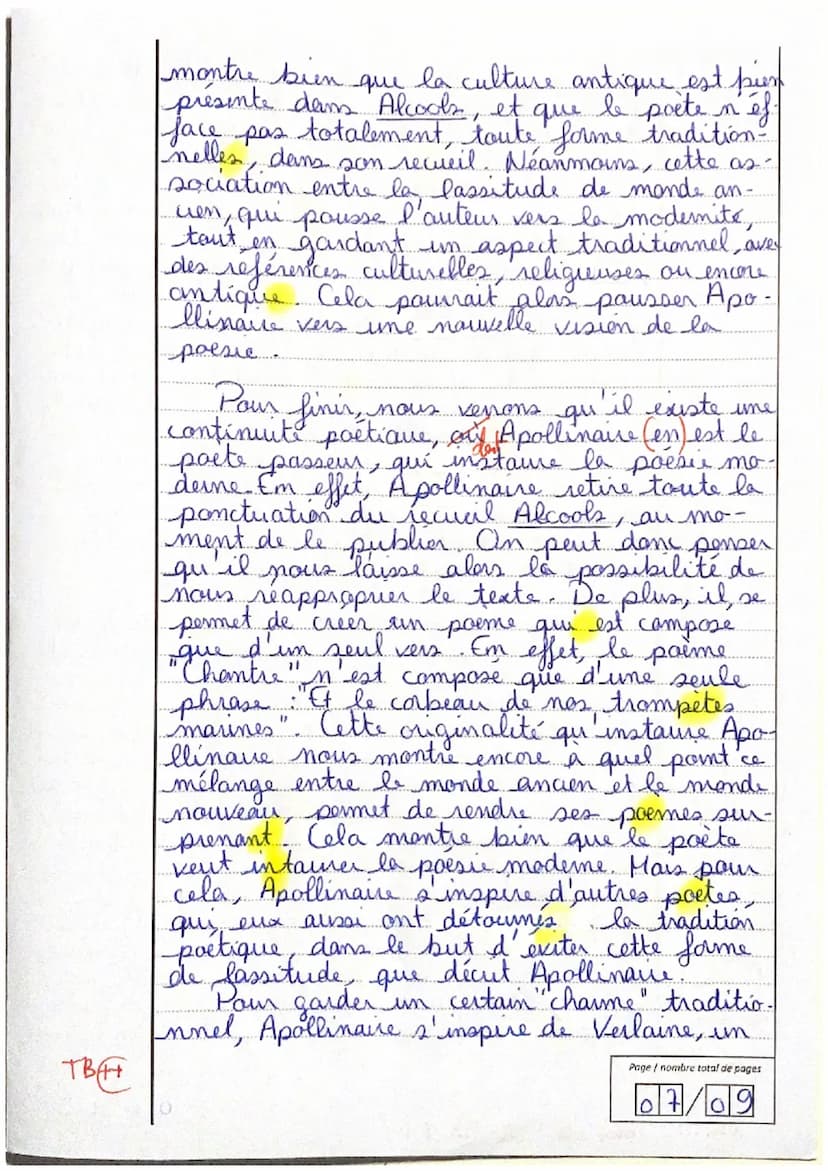 montre bien que la culture antique est bien
présente dans Alcools, et que le poète n'éf-
face pas totalement, toute forme tradition-
nelles, dans son recueil. Néanmoins, cette as-
sociation entre la lassitude de monde an-
cien, qui pousse l'auteur vers la modernité,
tout en gardant un aspect traditionnel, avec
des références culturelles, religieuses ou encore
antique. Cela pourrait alors pousser Apo-
llinaire vers une nouvelle vision de la
poésie.
Pour finir, nous verrons qu'il existe une
continuité poétique, où dont Apollinaire (en) est le
poète passeur, qui instaure la poésie mo-
derne. En effet, Apollinaire retire toute la
ponctuation du recueil Alcools, au mo-
ment de le publier. On peut donc penser
qu'il nous laisse alors la possibilité de
nous réapproprier le texte. De plus, il, se
permet de creer un poeme qui est compose
que d'un seul vers. En effet, le poème
"Chantre" n'est composé que d'une seule
phrase : "Et le corbeau de nos trompètes
marines". Cette originalité qu'instaure Apo-
llinaire nous montre encore à quel point ce
mélange entre le monde ancien et le monde
nouveau, permet de rendre ses poemes sur-
prenant. Cela montre bien que le poète
veut intaurer la poésie moderne. Mais pour
cela, Apollinaire s'inspire d'autres poetes,
qui eux aussi ont détournés la tradition
poétique, dans le but d'éviter cette forme
de lassitude, que décrit Apollinaire.
Pour garder un certain "charme" traditio-
nnel, Apollinaire s'inspire de Verlaine, un
TB++
Page / nombre total de pages
07/09